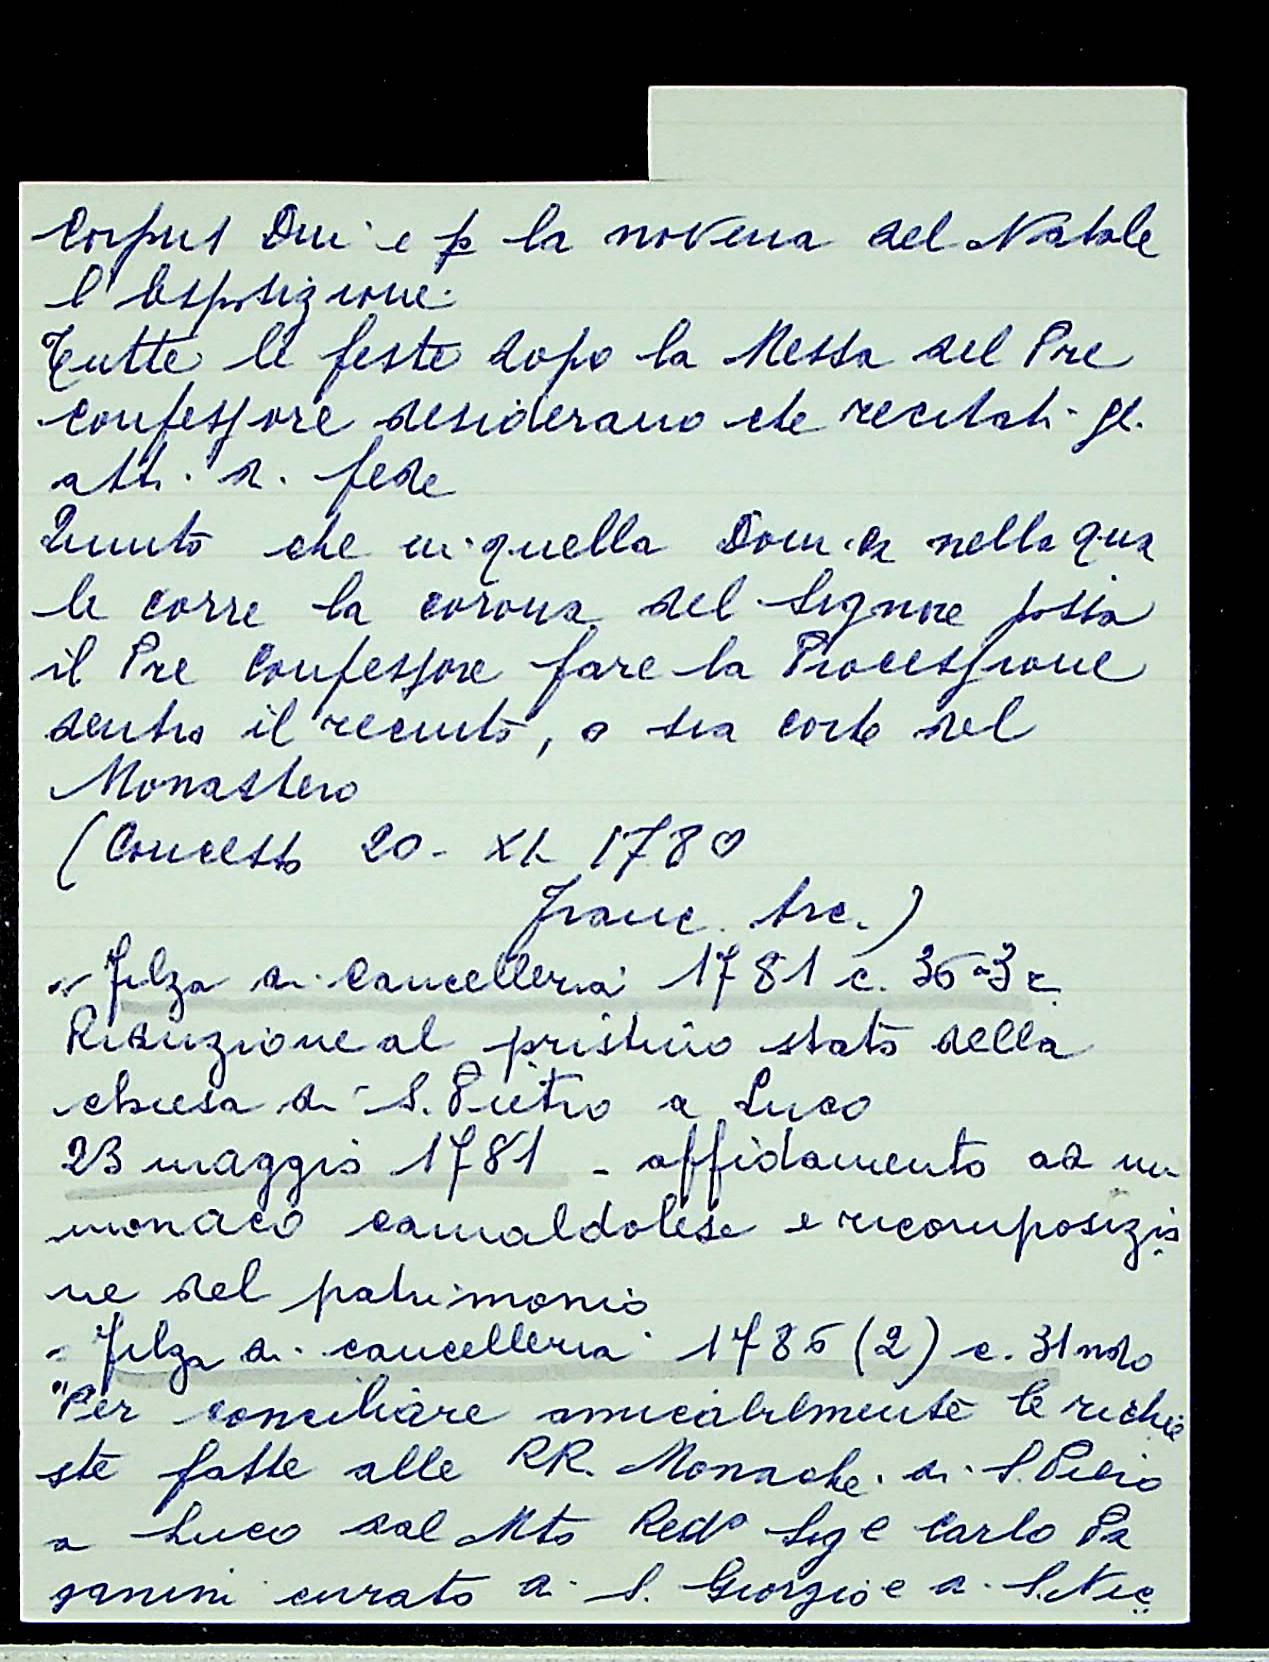 Corpus Dni e p la novena del Natale
l'esposizione.
Tutte le feste dopo la Messa del Pre
confessore desiderano che recitati gl.
atti di fede
Quinto che in quella Domca nella qua
le corre la corona del Signore possa
il Pre Confessore fare la Processione
dentro il recinto, o sia corte del
Monastero
(Concesso 20 - XI 1780
Franc. Arc.)
" Filza di Cancelleria 1781 c.
Riduzione al pristino stato della
chiesa di S. Pietro a Luco
23 maggio 1781 - affidamento ad un
monaco camaldolese e ricomposizio
ne del patrimonio
= Filza di cancelleria 1785 (2) c. 31
"Per conciliare amicabilmente le richie
ste fatte alle RR. Monache di S. Piero
a Luco dal Mto Redo Sige Carlo Pa
ganini curato di S. Giorgio e di S. Nic